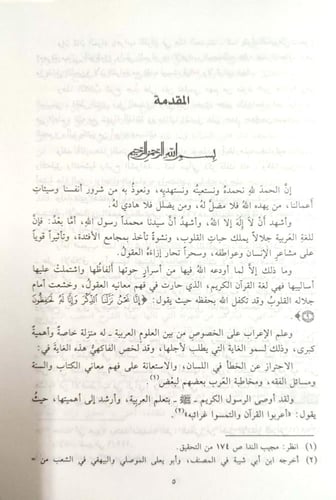 المقدمة
بسم الله الرحمن الرحيم
إنَّ الحمدَ للهِ نحمدهُ ونستعينُه ونستهديهِ، ونعوذُ به من شرور أنفسنا وسيئاتِ
أعمالنا، من يهده اللهُ فلا مضلَّ لهُ، ومن يضلل فلا هادي لهُ.
وأشهد أنْ لاَ إلهَ إلا اللهُ، وأشهدُ أنَّ سيدنا محمداً رسول اللهِ، أمَّا بعْدُ: فإنَّ
للغةِ العربية جلالاً يملك حباتِ القلوبِ، ونشوةً تأخذ بمجامع الأفئدة، وتأثيراً قوياً
على مشاعرِ الإنسان وعواطفه، وسحراً تحار إزاءهُ العقولُ.
وما ذلك إلا لما أودعه اللهُ فيها من أسرارٍ حوتها ألفاظُها واشتملتْ عليها
أساليبها فهي لغة القرآن الكريم، الذي حارت في فهم معانيه العقولُ، وخشعت أمام
جلاله القلوب وقد تكفل الله بحفظه حيث يقول: ﴿إِنَّا نَحْنُ نَزَّلْنَا الذِّكْرَ وَإِنَّا لَهُ لَحَافِظُونَ
﴾.
وعلم الإعراب على الخصوص من بين العلوم العربية ـ له منزلة خاصةٌ وأهميةٌ
كبرى، وذلك لسمو الغايةِ التي يطلب لأجلها، وقد لخص الفاكهيُّ هذه الغايةَ في:
الاحتراز عن الخطأ في اللسان، والاستعانة على فهم معاني الكتاب والسنة
ومسائل الفقه، ومخاطبة العرب بعضهم لبعض(١).
ولقد أوصى الرسول الكريم ـ ﷺ ـ بتعلم العربية، وأرشد إلى أهميتها، حيثُ
يقول: «أعربوا القرآن والتمسوا غرائبه»(٢).
(١) انظر: مجيب الندا ص ١٧٤ من التحقيق.
(٢) أخرجه ابن أبي شيبة في المصنف، وأبو يعلى الموصلي والبيهقي في الشعب من =
٥